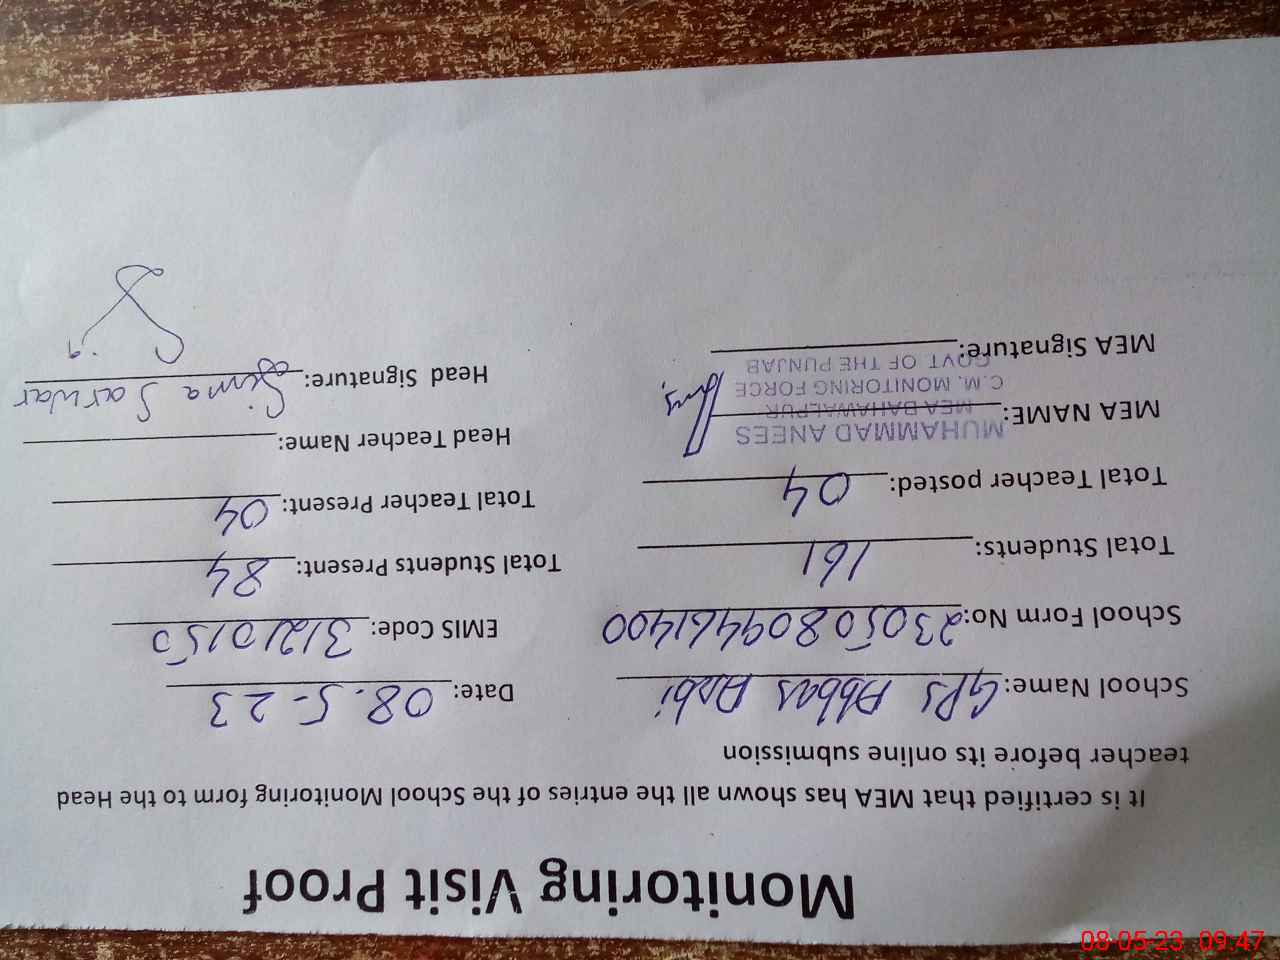 Monitoring Visit Proof
It is certified that MEA has shown all the entries of the School Monitoring form to the Head
teacher before its online submission
School Name: GPS Abbas Arbi Date: 08.5-23
School Form No: 23050809461400 EMIS Code: 31210150
Total Students: 161 Total Students Present: 84
Total Teacher posted: 04 Total Teacher Present: 04
MUHAMMAD ANEES
MEA NAME: Head Teacher Name:
MEA BAHAWALPUR
C.M. MONITORING FORCE
GOVT OF THE PUNJAB
MEA Signature: Head Signature: Sarwar
08-05-23 09:47